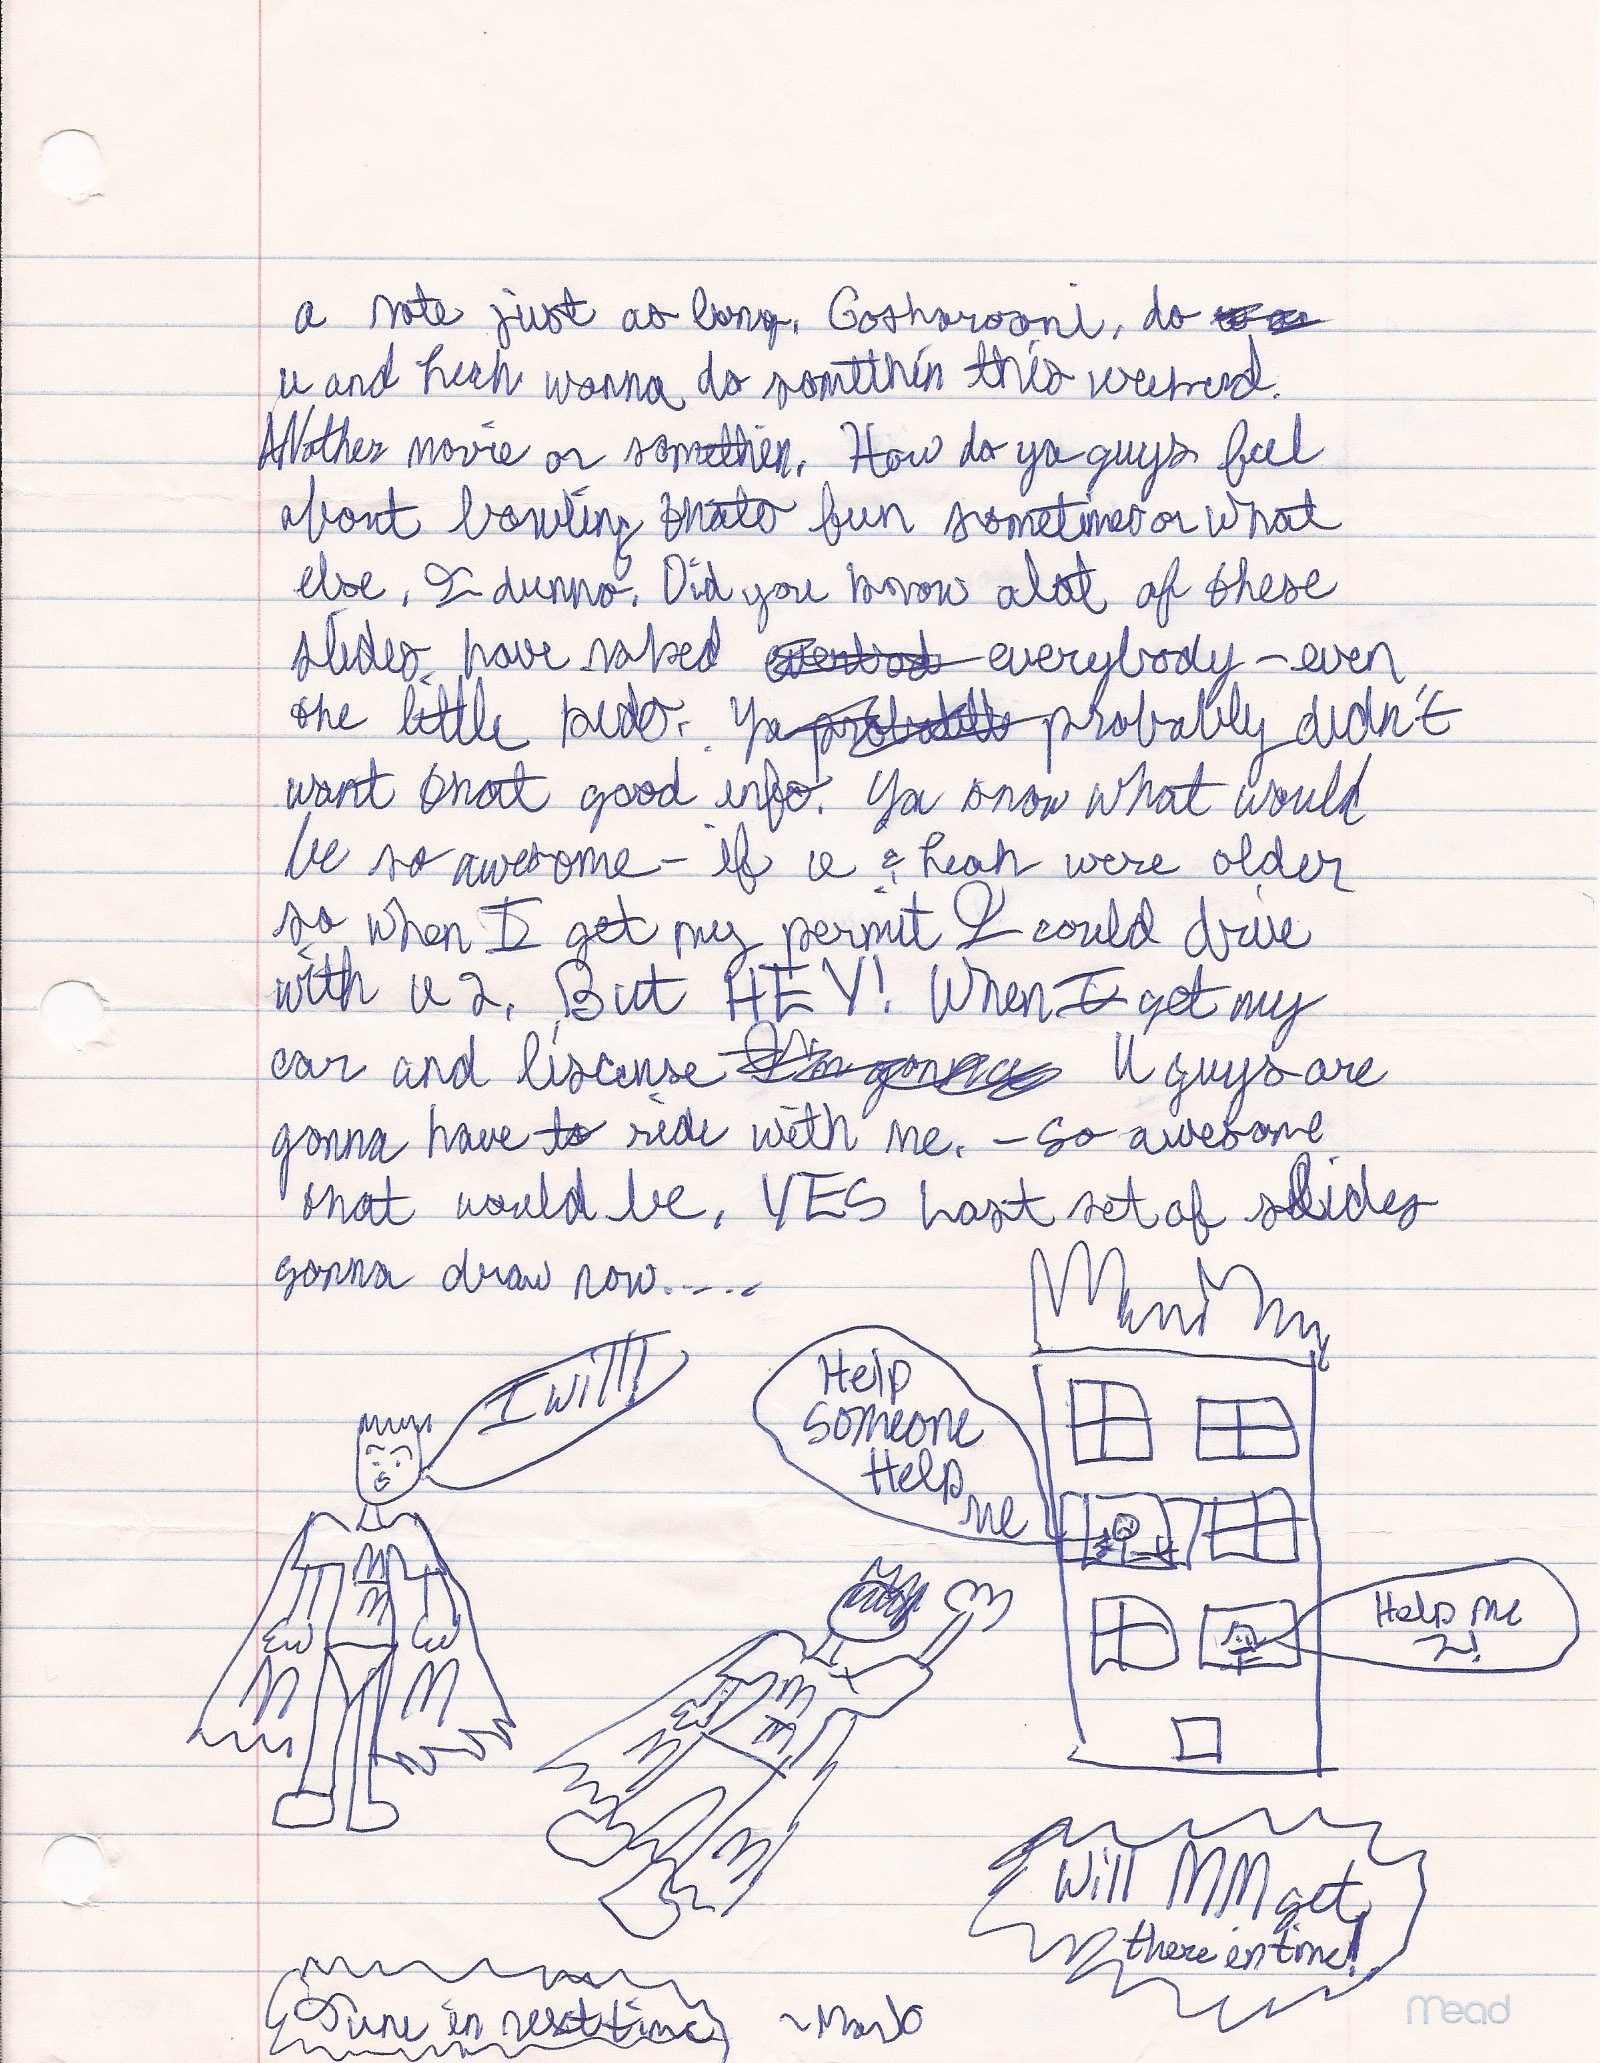 a note just as long. Gosharooni, do
u and Leah wanna do somtthin this weekend.
ANother movie or somethin. How do ya guys feel
about bowling thats fun sometimes or what
else, I dunno. Did you know alot of these
slides have naked everybody - even
the little kids. Ya probably didn't
want that good info. Ya know what would
be so awesome - if u & Leah were older
so when I get my permit I could drive
with u 2. But HEY! When I get my
car and liscense U guys are
gonna have to ride with me. - so awesome
that would be. YES Last set of slides
gonna draw now.....
I will!
Help
Someone
Help
me
Help me
2!
M
M
M
M
Will MM get
there in time!
Tune in next time
~Mark
Mead